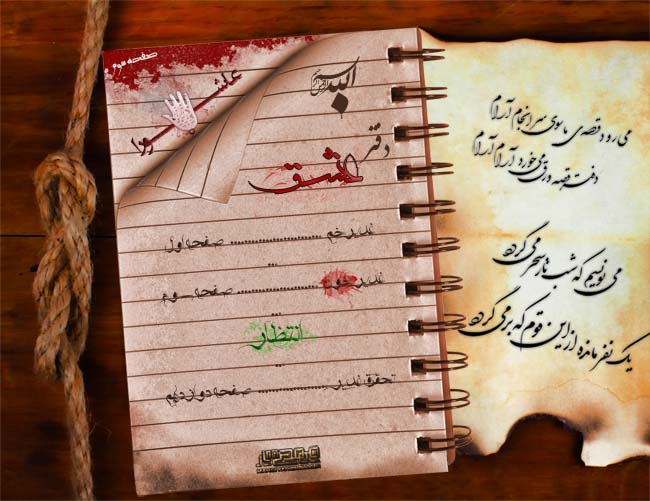 صفحه سوم
عاشورا
دفتر
عشق
غدیر خم ........................ صفحه اول
...
غدیر خون ........................ صفحه سوم
...
انتظار
...
تحقق غدیر ........................ صفحه دوازدهم
می رود قصه ی ما سوی سرانجام آرام
دفتر قصه ورق می خورد آرام آرام
می نویسم که شب تار سحر می گردد
یک نفر مانده از این قوم که برمی گردد